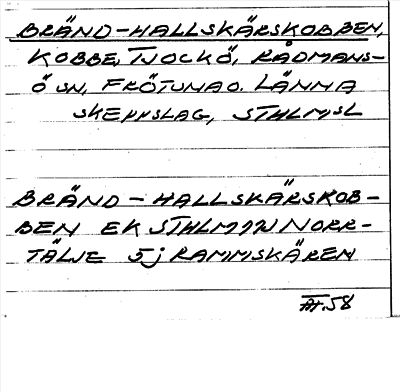 BRÄND-HALLSKÄRSKOBBEN,
KOBBE, TJOCKÖ, RÅDMANS-
Ö SN, FRÖTUNA O. LÄNNA
SKEPPSLAG, STHLMSL
BRÄND - HALLSKÄRSKOB-
BEN EK STHLM 12N NORR-
TÄLJE 5j RAMMSKÄREN
58